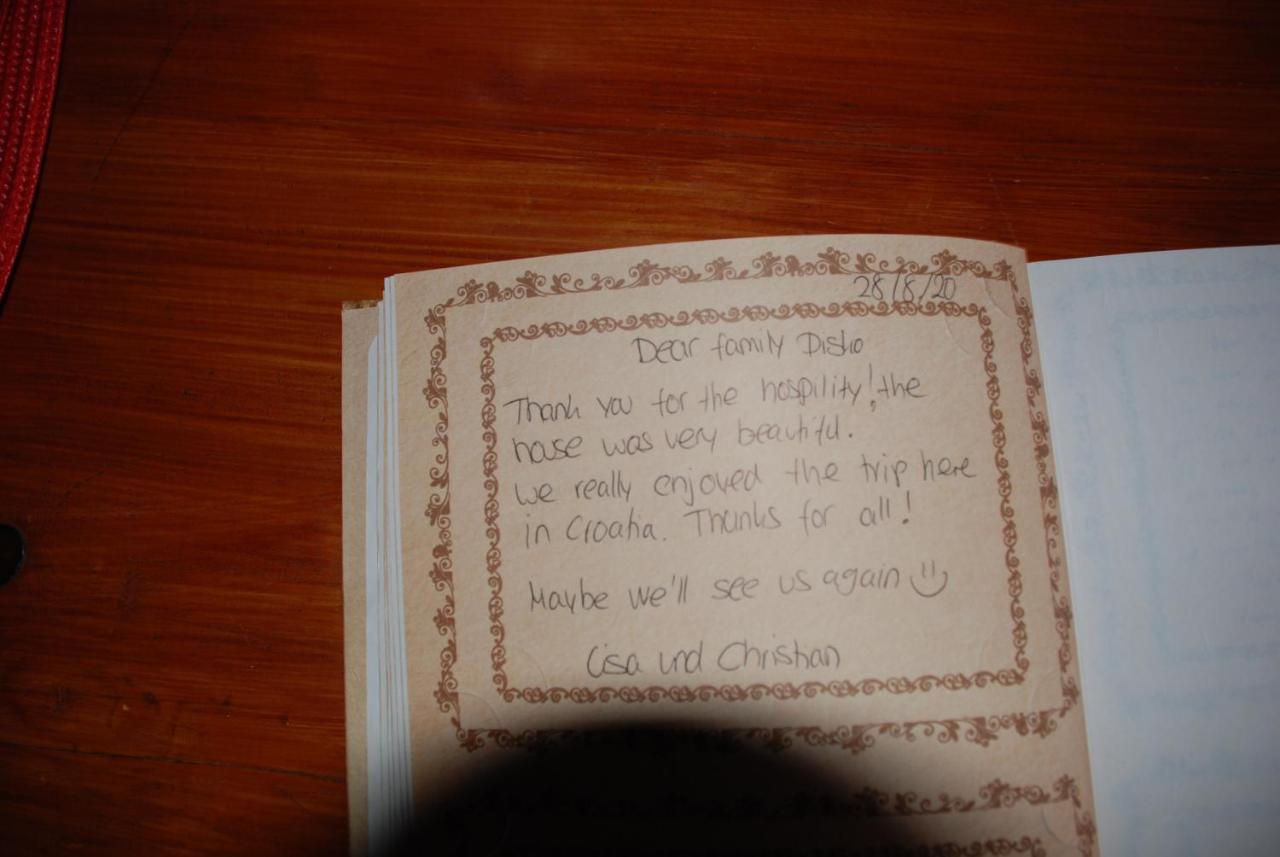 28/8/20
Dear family Disho
Thank you for the hospility! the
house was very beautiful.
we really enjoyed the trip here
in Croatia. Thanks for all!
Maybe we'll see us again :)
Lisa und Christian